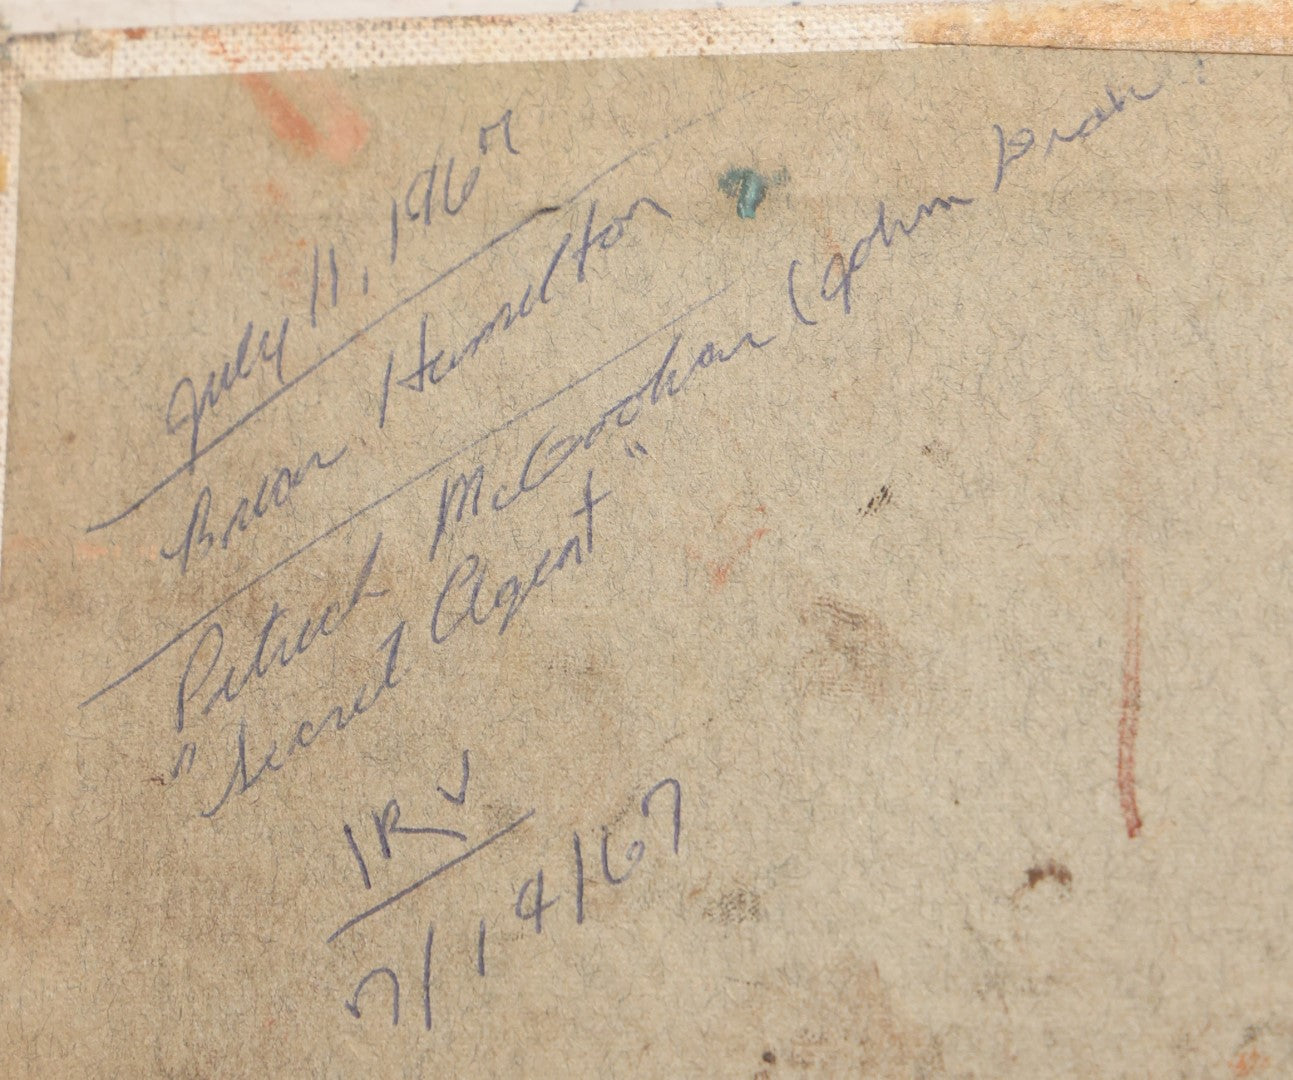 July 11, 1967
Brian Hamilton
Patrick McGoohan (John Drake)
"Secret Agent"
IRV
7/14/67